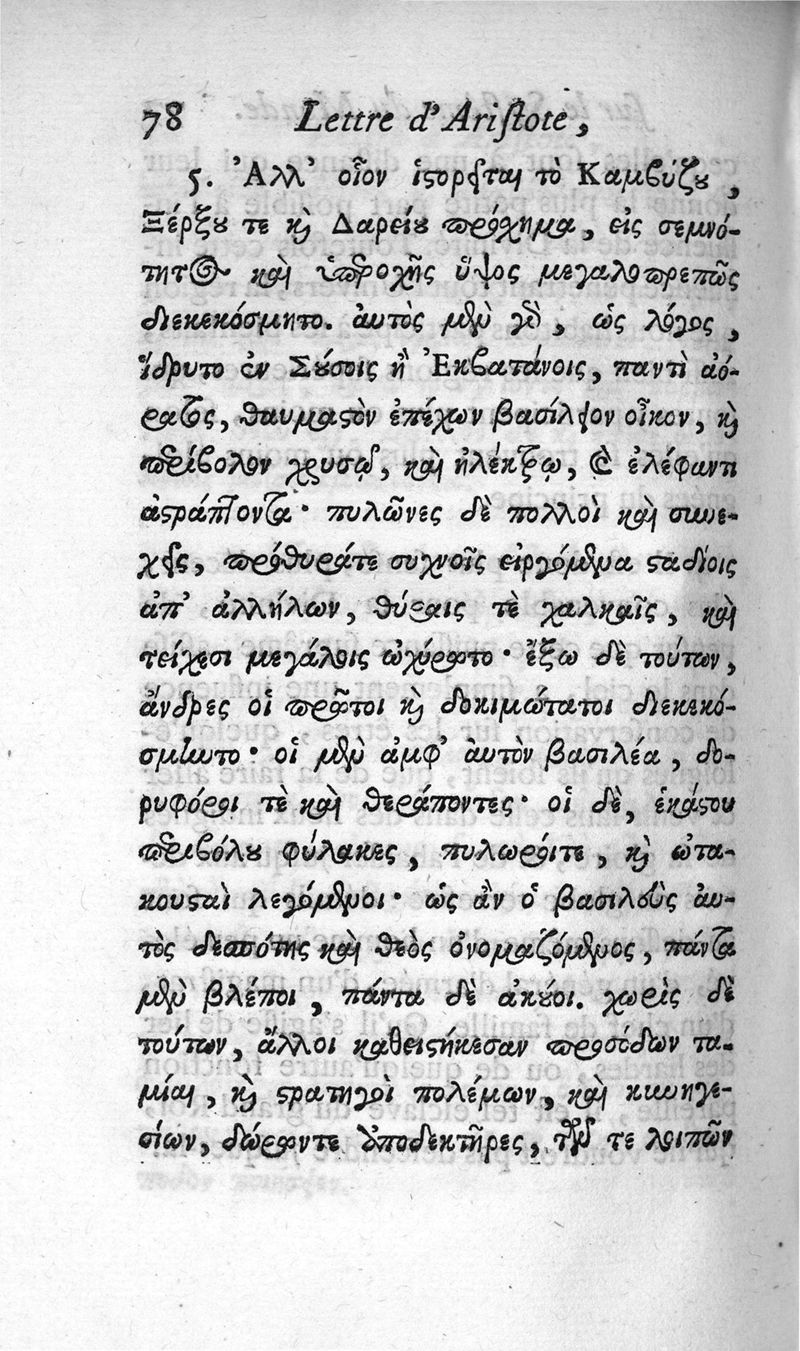 78 Lettre d'Ariſtote,
5. Ἀλλ' οἷον ἱϛορεῖται τὸ Καμϐύζȣ,
Ξέρξȣ τε ϗ̀ Δαρείȣ πρόχημα, εἰς σεμνό-
τητος καὶ ὑπεροχῆς ὕψος μεγαλοπρεπῶς
διεκεκόσμητο. ἀυτὸς μὲν γὸ, ὡς λόγος,
ἵδρυτο ἐν Σȣ́σοις ἢ Ἐκϐατάνοις, παντὶ ἀό-
ρατος, θαυμαϛὸν ἐπέχων βασίλειον οἶκον, ϗ̀
περίϐολον χρυσῷ, καὶ ἠλέκτρῳ, & ἐλέφαντι
ἀϛράπτοντα· πυλῶνες δὲ πολλοὶ καὶ συνε-
χεῖς, πρόθυράτε συχνοῖς εἰργόμενα ϛαδίοις
ἀπ' ἀλλήλων, θύραις τὲ χαλκαῖς, καὶ
τείχεσι μεγάλοις ὠχύρωτο· ἔξω δὲ τούτων,
ἄνδρες οἱ πρῶτοι ϗ̀ δοκιμώτατοι διεκεκό-
σμηντο· οἱ μὲν ἀμφ' ἀυτὸν βασιλέα, δο-
ρυφόροι τὲ καὶ θεράποντες· οἱ δὲ, ἑκάϛου
περιϐόλȣ φύλακες, πυλωροίτε, ϗ̀ ὠτα-
κουϛαὶ λεγόμενοι· ὡς ἂν ὁ βασιλεὺς ἀυ-
τὸς δεσπότης καὶ θεὸς ὀνομαζόμενος, πάντα
μὲν βλέποι, πάντα δὲ ἀκȣ́οι. χωρὶς δὲ
τούτων, ἄλλοι καθειϛήκεσαν προσόδων τα-
μίαι, ϗ̀ ϛρατηγοὶ πολέμων, καὶ κυνηγε-
σίων, δώρωντε ὑποδεκτῆρες, τῶν τε λοιπῶν